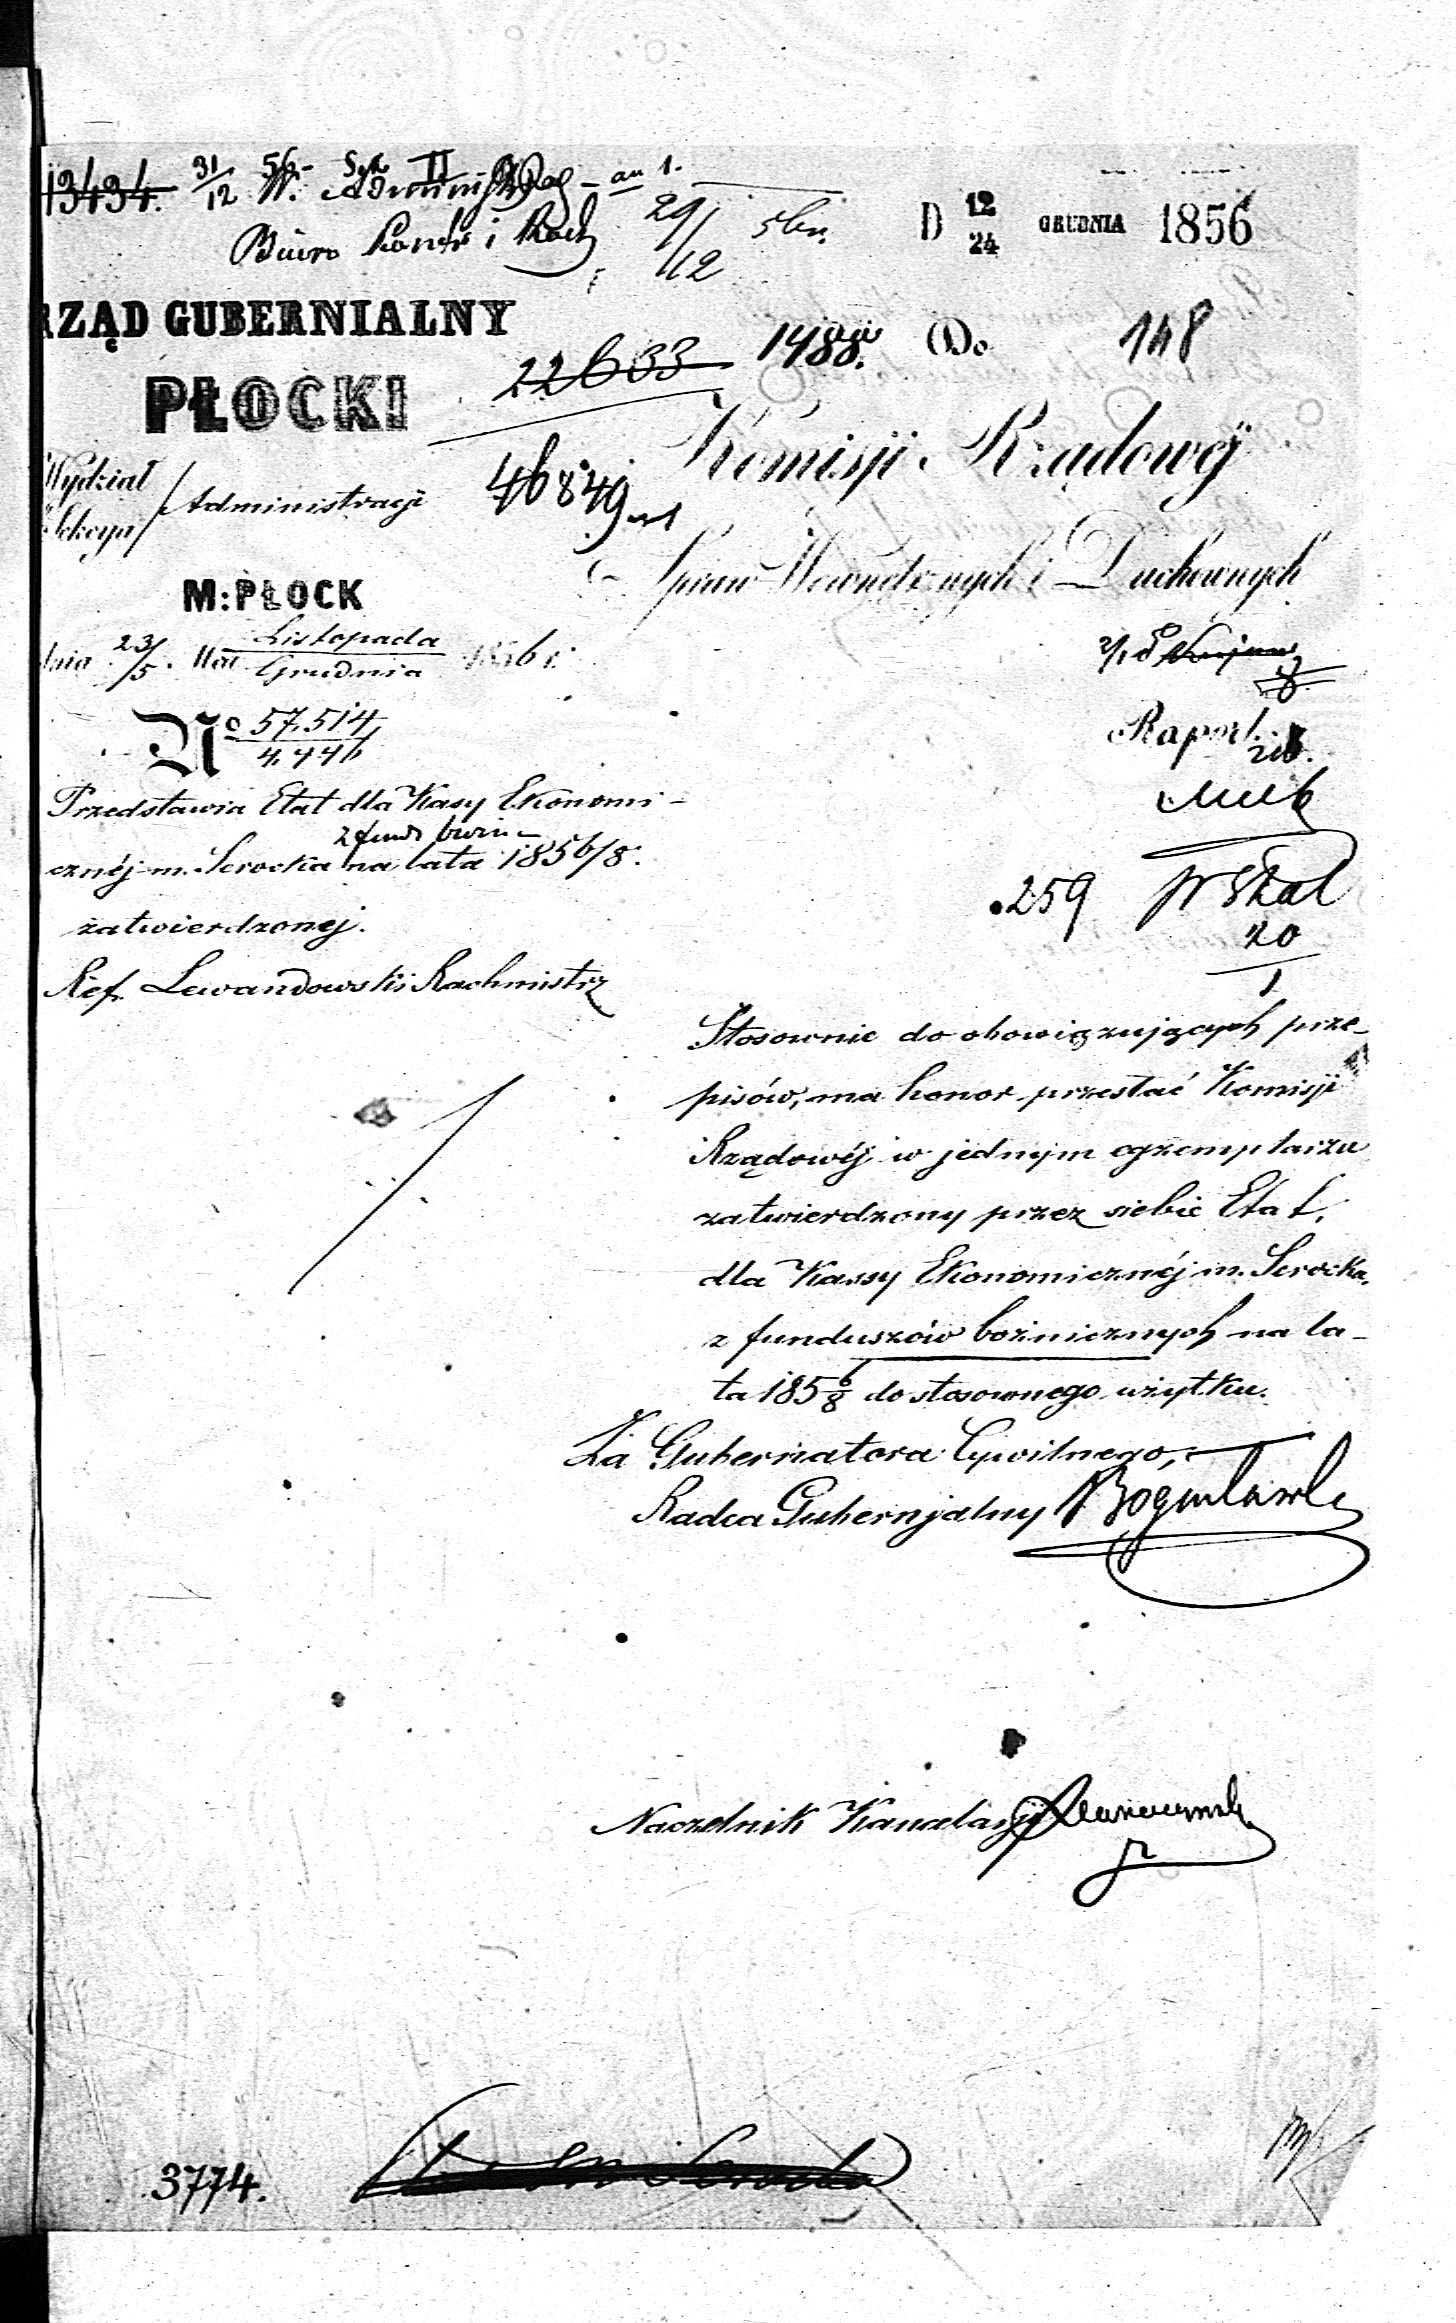 13434. 31/12 56.
Biuro Kontr i Rach 29/12
D 12/24 GRUDNIA 1856
RZĄD GUBERNIALNY
PŁOCKI
22633
1488.
Do
148
Komisji Rządowéj
Wydział
Sekcya
Administracji
46849
Spraw Wewnętrznych i Duchownych
M: PŁOCK
dnia 23/5 Listopada
Grudnia 1856 r.
No 57,514
4,446
Raport.
Przedstawia Etat dla Kasy Ekonomi-
z fund bożni
cznéj m. Serocka na lata 1856/8.
zatwierdzonej.
Ref. Lewandowski Rachmistrz
259
20
1
Stosownie do obowiązujących prze-
pisów, ma honor przesłać Komisji
Rządowéj w jednym egzemplarzu
zatwierdzony przez siebie Etat,
dla Kassy Ekonomicznéj m. Serocka,
z funduszów bożnicznych na la-
ta 1856/8 do stosownego użytku.
Za Gubernatora Cywilnego,
Radca Gubernjalny
Naczelnik Kancelaryi
3774.